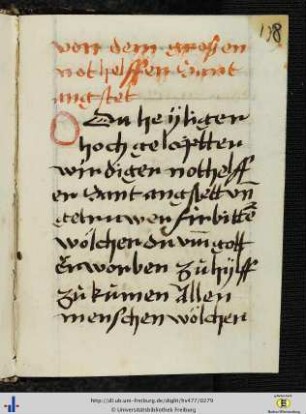 138
von dem großen
nothelffer Sant
angstet
O Du heyliger
hoch geloptter
wirdiger nothelff
er Sant angstett vn̄
getruwer fürbittē
wölcher du vm̄ gott
Erworben zu hylff
zu kumen Allen
menschen wölcher
http://dl.ub.uni-freiburg.de/diglit/hs477/0279
© Universitätsbibliothek Freiburg